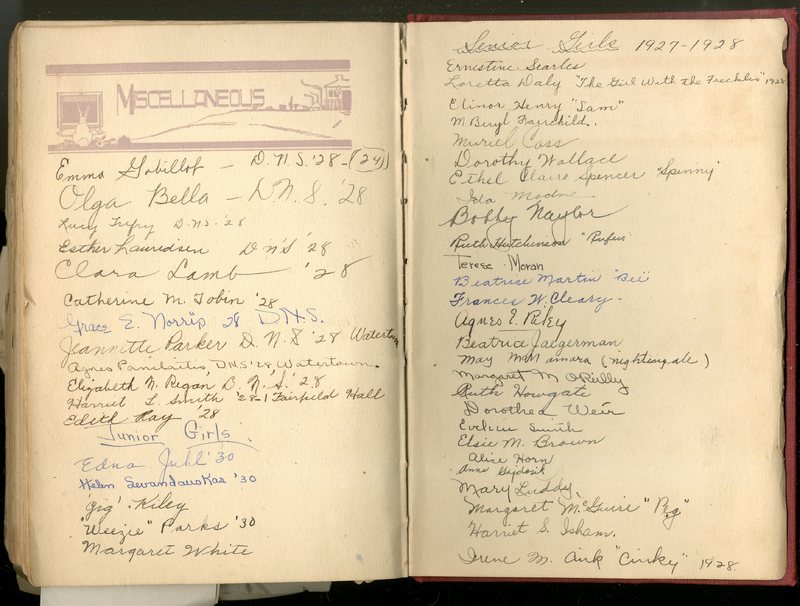 MISCELLANEOUS
Emma Gobillot - D.N.S. '28 - (24)
Olga Bella - D.N.S. '28
Lucy Trefry D.N.S. '28
Esther Lauridsen D N S '28
Clara Lamb '28
Catherine M. Tobin '28
Grace E. Norrip 28 D.N.S.
Jeannette Parker D.N.S '28 Watertown
Agnes Panilaitis, D.N.S '28 Watertown.
Elizabeth N. Regan D.N.S. '28
Harriet L. Smith '28-1 Fairfield Hall
Edith Ray '28
Junior Girls.
Edna Juhl '30
Helen Sevandauskas '30
'Gig' Kiley
"Weezie" Parks '30
Margaret White
Senior Girls 1927-1928
Ernestine Searles
Loretta Daly "The Girl With the Freckles" 1928
Elinor Henry "Sam"
M Beryl Fairchild.
Muriel Cass
Dorothy Wallace
Ethel Claire Spencer "Spinny"
Ida
Bobby Naylor
Ruth Hutchinson "Rufus"
Terese Moran
Beatrice Martin "Bee"
Frances W. Cleary -
Agnes E. Riley
Beatrice Jaegerman
May McNamara (nightingale)
Margaret M O'Reilly
Ruth Howgate
Dorothea Weir
Evelyn Smith
Elsie M. Brown
Alice Horn
Anna
Mary Luddy.
Margaret McGuire "Peg"
Harriet S. Isham.
Irene M. Cink "Cinky" 1928.